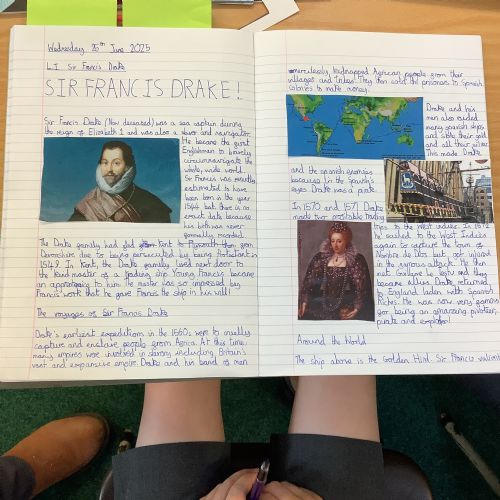 Wednesday 25th June 2025
L.I. Sir Francis Drake
SIR FRANCIS DRAKE!
Sir Francis Drake (Now deceased) was a sea captain during
the reign of Elizabeth 1 and was also a slaver and navigator.
He became the first
Englishman to bravely
circumnavigate the
whole, wide world.
Sir Francis was
estimated to have
been born in the year
1544 but there is no
exact date because
his birth was never
formally recorded.
The Drake family had fled Kent to Plymouth then from
Devonshire due to being persecuted by being Protestant in
1549. In Kent, the Drake family lived next door to
the head master of a trading ship. Young Francis became
an apprentice to him. The master was so impressed by
Francis' work that he gave Francis the ship in his will!
The voyages of Sir Francis Drake
Drake's earliest expeditions in the 1560s were to cruelly
capture and enslave people from Africa. At this time,
many empires were involved in slavery including Britain's
vast and expansive empire. Drake and his band of men
mercilessly kidnapped African people from their
villages and tribes. They then sold the prisoners to Spanish
Colonies to make money.
Drake and his
men also raided
many Spanish ships
and stole their gold
and all their
This made Drake
and the Spanish enemies
because in the Spanish's
eyes Drake was a pirate.
In 1570 and 1571 Drake
made two profitable trading
trips to the West Indies. In 1572
he sailed to the West Indies
again to capture the town of
Nombre de Dios but got injured
in the vigorous attack. He then
met Guillaume Le Testu and they
became allies. Drake returned
to England laden with Spanish
Riches. He was now very famous
for being an amazing privateer,
pirate and explorer!
Around the World
The ship above is the Golden Hind. Sir Francis